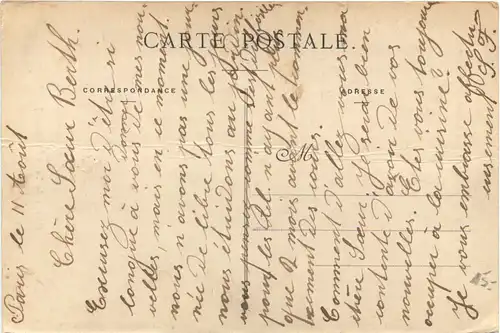 CARTE POSTALE.
CORRESPONDANCE
ADRESSE
M
Paris le 11 Août
Chère Sœur Berth.
Excusez moi d'être si
longue à vous donner nos nou
velles, mais en ce moment
nous n'avons pas une jour
née de libre tous les jours
nous étudions au
pour les
que 2 mois avant le commen
cement des cours.
Comment allez vous ma
chère Sœur, Je serai bien
contente d'avoir de vos
nouvelles. Etes vous toujours
occupée à la cuisine?
Je vous embrasse affectu
eusement
15-